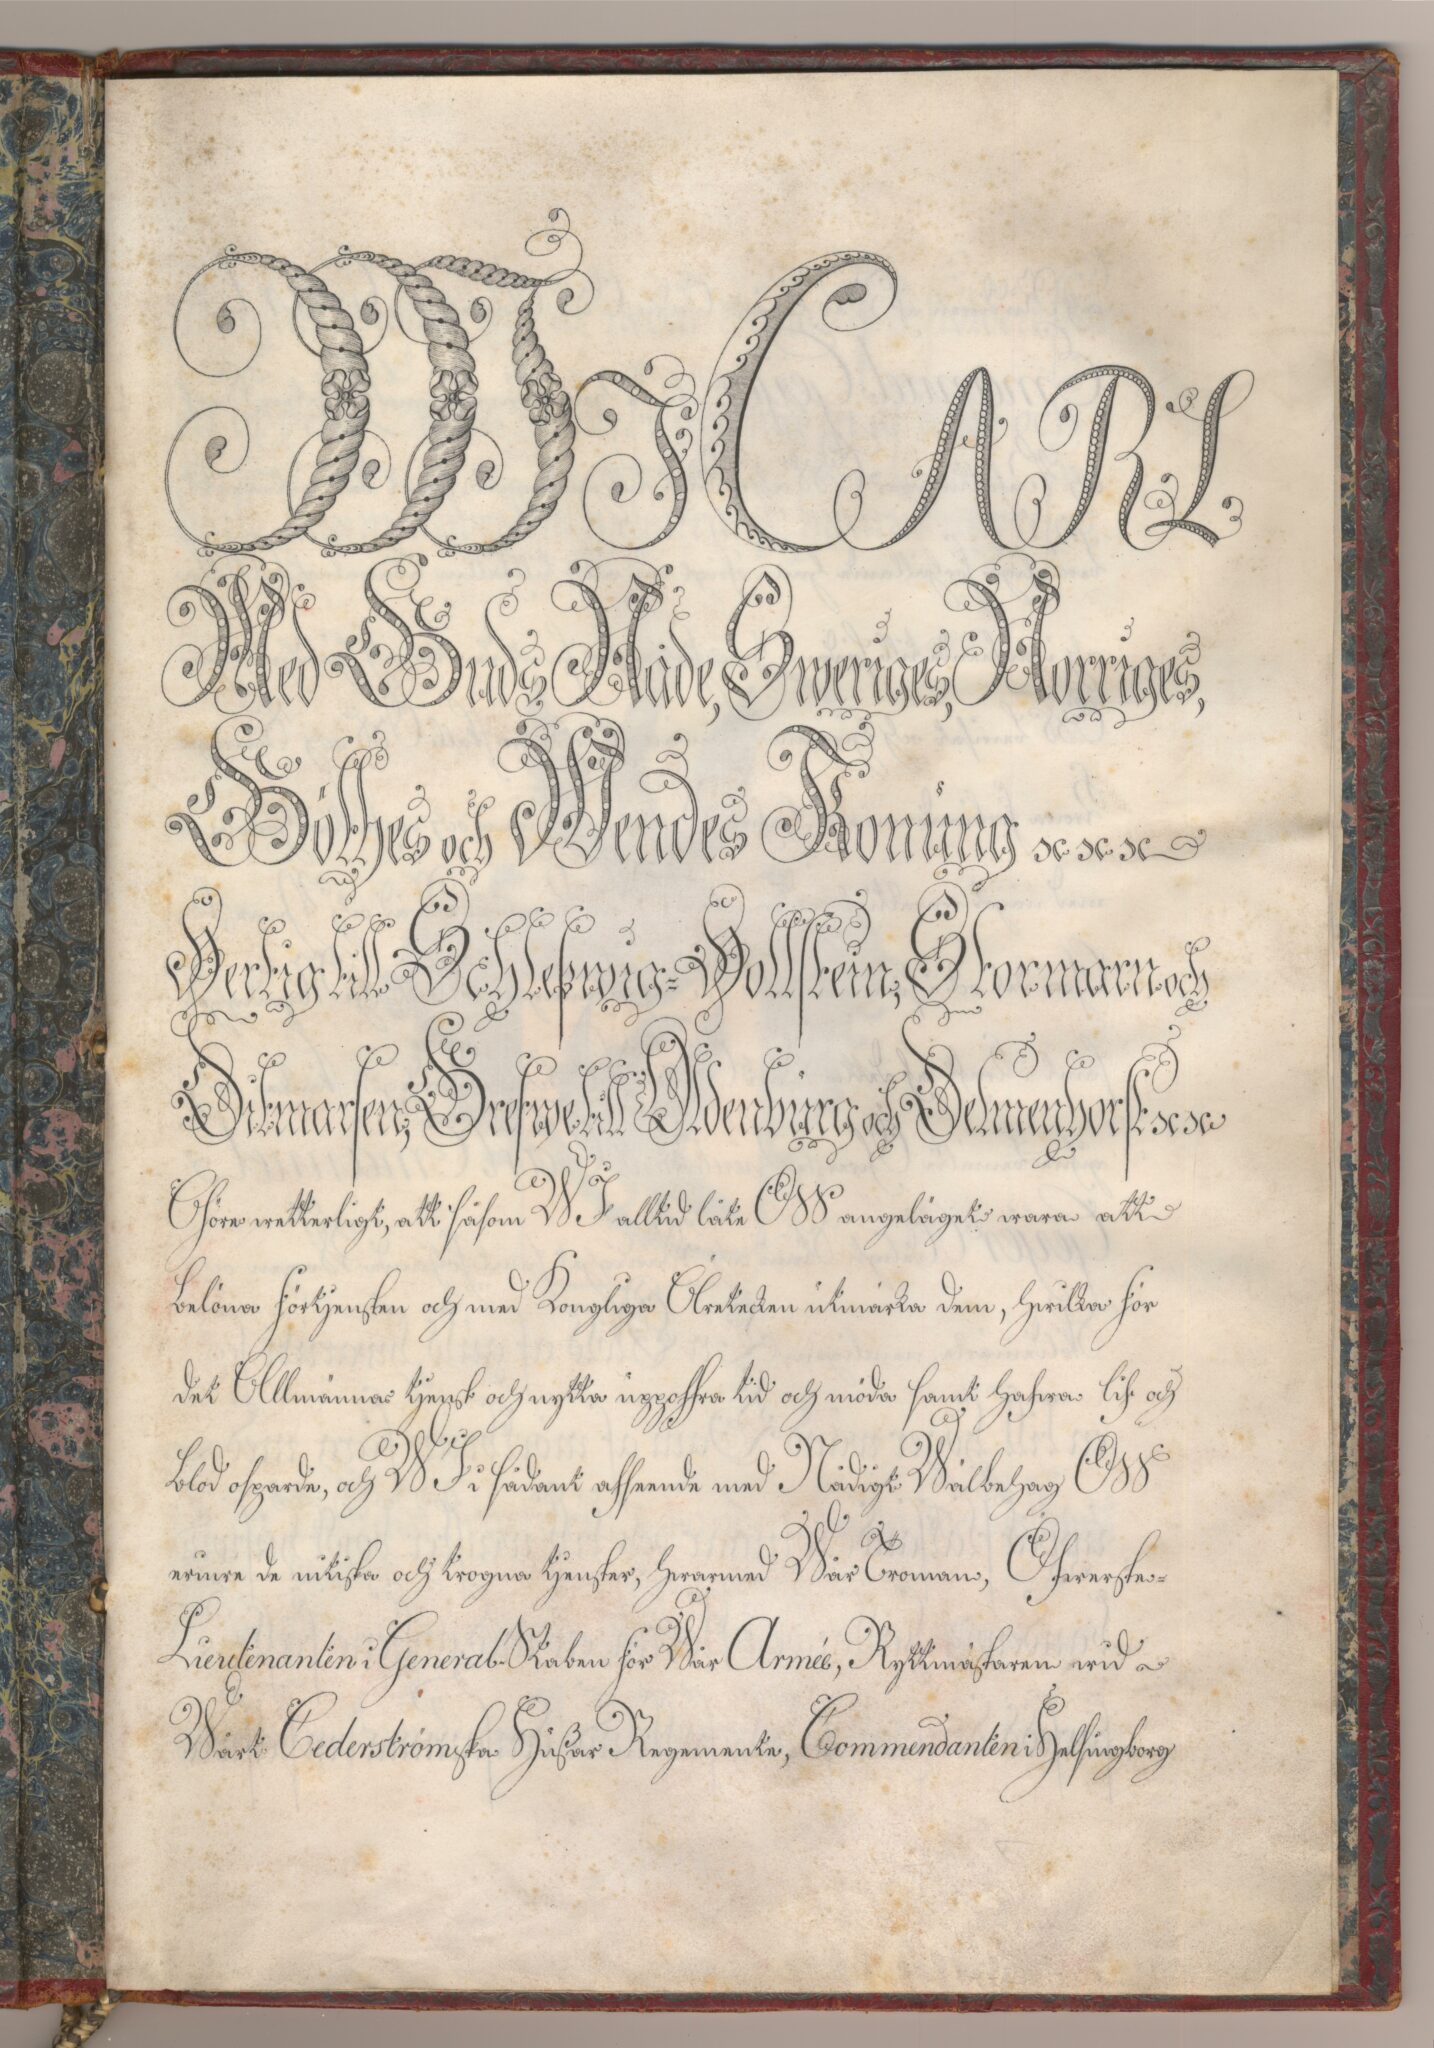 Wi CARL
Med Guds Nåde, Sweriges, Norriges,
Göthes och Wendes Konung &c &c &c
Hertig till Schleswig-Hollstein, Stormarn och
Ditmarsen, Grefwe till Oldenburg och Delmenhorst &c &c
Göre wetterligt, att såsom WI alltid låte OSS angeläget wara att
belöna förtjensten och med Kongliga Äretecken utmärka dem, hwilka för
det Allmännas tjenst och nytta uppoffra tid och möda samt hafwa lif och
blod osparde, och WI i sådant afseende med Nådigt Wälbehag OSS
erinre de nitiska och trogna tjenster, hwarmed Wår Troman, Öfwerste-
Lieutenanten i General-Staben för Wår Armée, Ryttmästaren wid
Wårt Cederströmska Hußar Regemente, Commendanten i Helsingborg